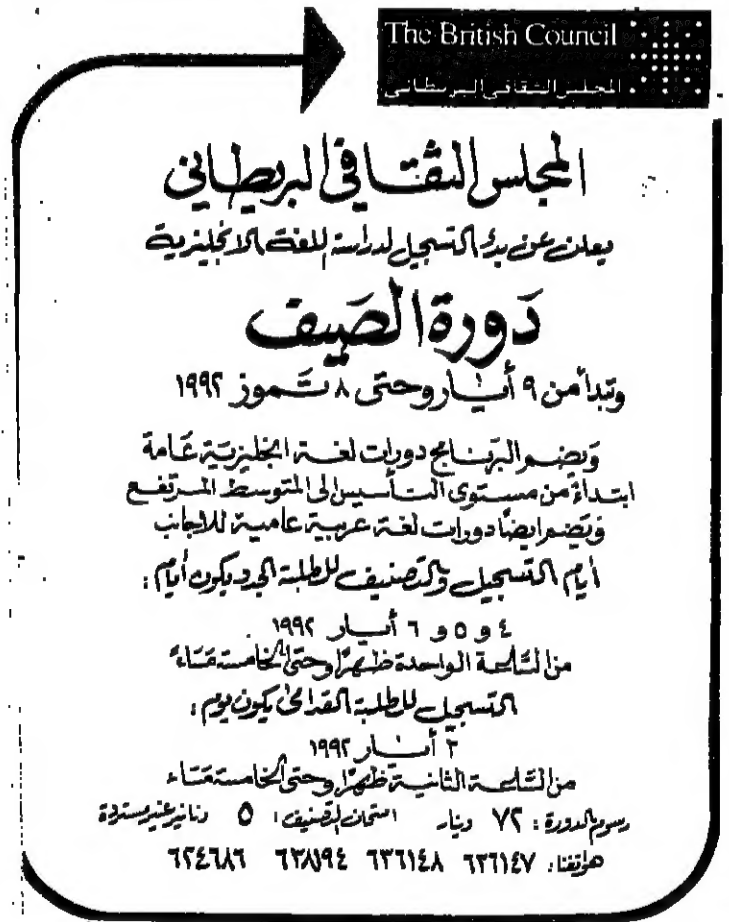 The British Council
المجلس الثقافي البريطاني
المجلس الثقافي البريطاني
يعلن عن بدء التسجيل لدراسة اللغة الانجليزية
دَورة الصَيف
وتبدأ من ٩ أيار وحتى ٨ تموز ١٩٩٢
وَيضم البرنامج دورات لغة انجليزية عَامة
ابتداءً من مستوى التأسيس الى المتوسط المرتفع
وَيضم ايضاً دورات لغة عربية عامية للاجانب
أيام التسجيل والتصنيف للطلبة الجدد يكون أيام :
٤ و ٥ و ٦ أيار ١٩٩٢
من السَّاعة الواحدة ظهرًا وحتى الخامسة مَسَاءً
التسجيل للطلبة القدامى يكون يوم :
٣ أيار ١٩٩٢
من السَّاعة الثانية ظهرًا وحتى الخامسة مَسَاء
رسوم الدورة : ٧٢ دينار امتحان التصنيف : ٥ دنانير غير مستردة
هواتفنا : ٦٣٦١٤٧ ٦٣٦١٤٨ ٦٣٨١٩٤ ٦٢٤٦٨٦